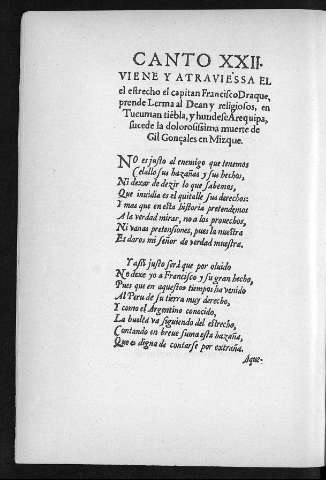 CANTO XXII.
VIENE Y ATRAVIESSA EL
el estrecho el capitan Francisco Draque,
prende Lerma al Dean y religiosos, en
Tucuman tiẽbla, y hundese Arequipa,
sucede la dolorosissima muerte de
Gil Gonçales en Mizque.
NO es justo al enemigo que tenemos
Celallo sus hazañas y sus hechos,
Ni dexar de dezir lo que sabemos,
Que inuidia es el quitalle sus derechos:
Y mas que en esta historia pretendemos
A la verdad mirar, no a los prouechos,
Ni vanas pretensiones, pues la nuestra
Es daros mi señor de verdad muestra.
Y assi justo serà que por oluido
No dexe yo a Francisco y su gran hecho,
Pues que en aquestos tiempos ha venido
Al Peru de su tierra muy derecho,
Y como el Argentino conocido,
La buelta va siguiendo del estrecho,
Contando en breue suma esta hazaña,
Que es digna de contarse por estraña.
Aque-